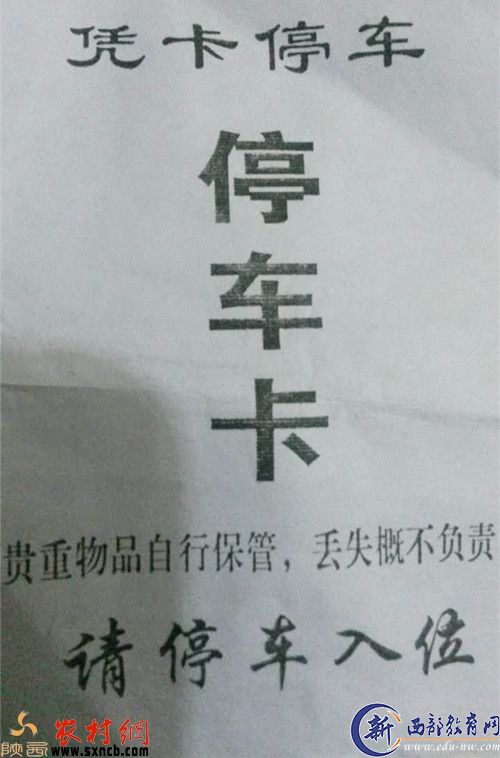 凭卡停车
停
车
卡
贵重物品自行保管，丢失概不负责
请停车入位
陕西 农村網
www.sxncb.com
新 西部教育网
www.edu-nw.com